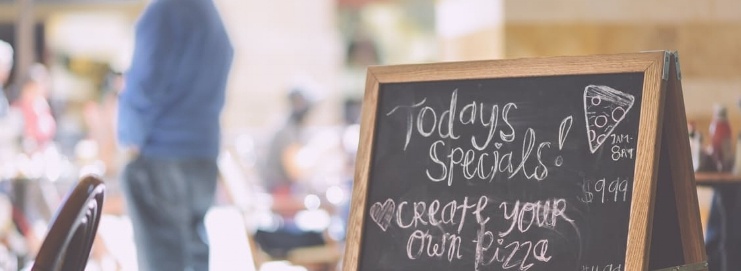 Todays
Specials!
7AM-
8PM
$9.99
CREATE YOUR
OWN PIZZA